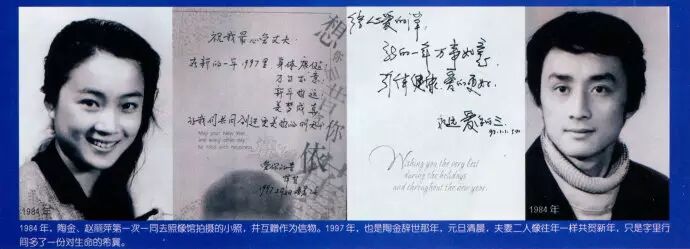 祝我最心爱丈夫
在新的一年1997里 身体康健
万事如意
新年愉快
美梦成真
让我们共同创造更美好的明天
May your New Year
and every other day
be filled with happiness.
想
你
依
新的一年万事如意
身体健康
永远爱你的三
Wishing you the very best
during the holidays
and throughout the new year.
1984年
1984年
1984年，陶金、赵丽萍第一次一同去照像馆拍摄的小照，并互赠作为信物。1997年，也是陶金辞世那年，元旦清晨，夫妻二人像往年一样共贺新年，只是字里行
间多了一份对生命的希翼。